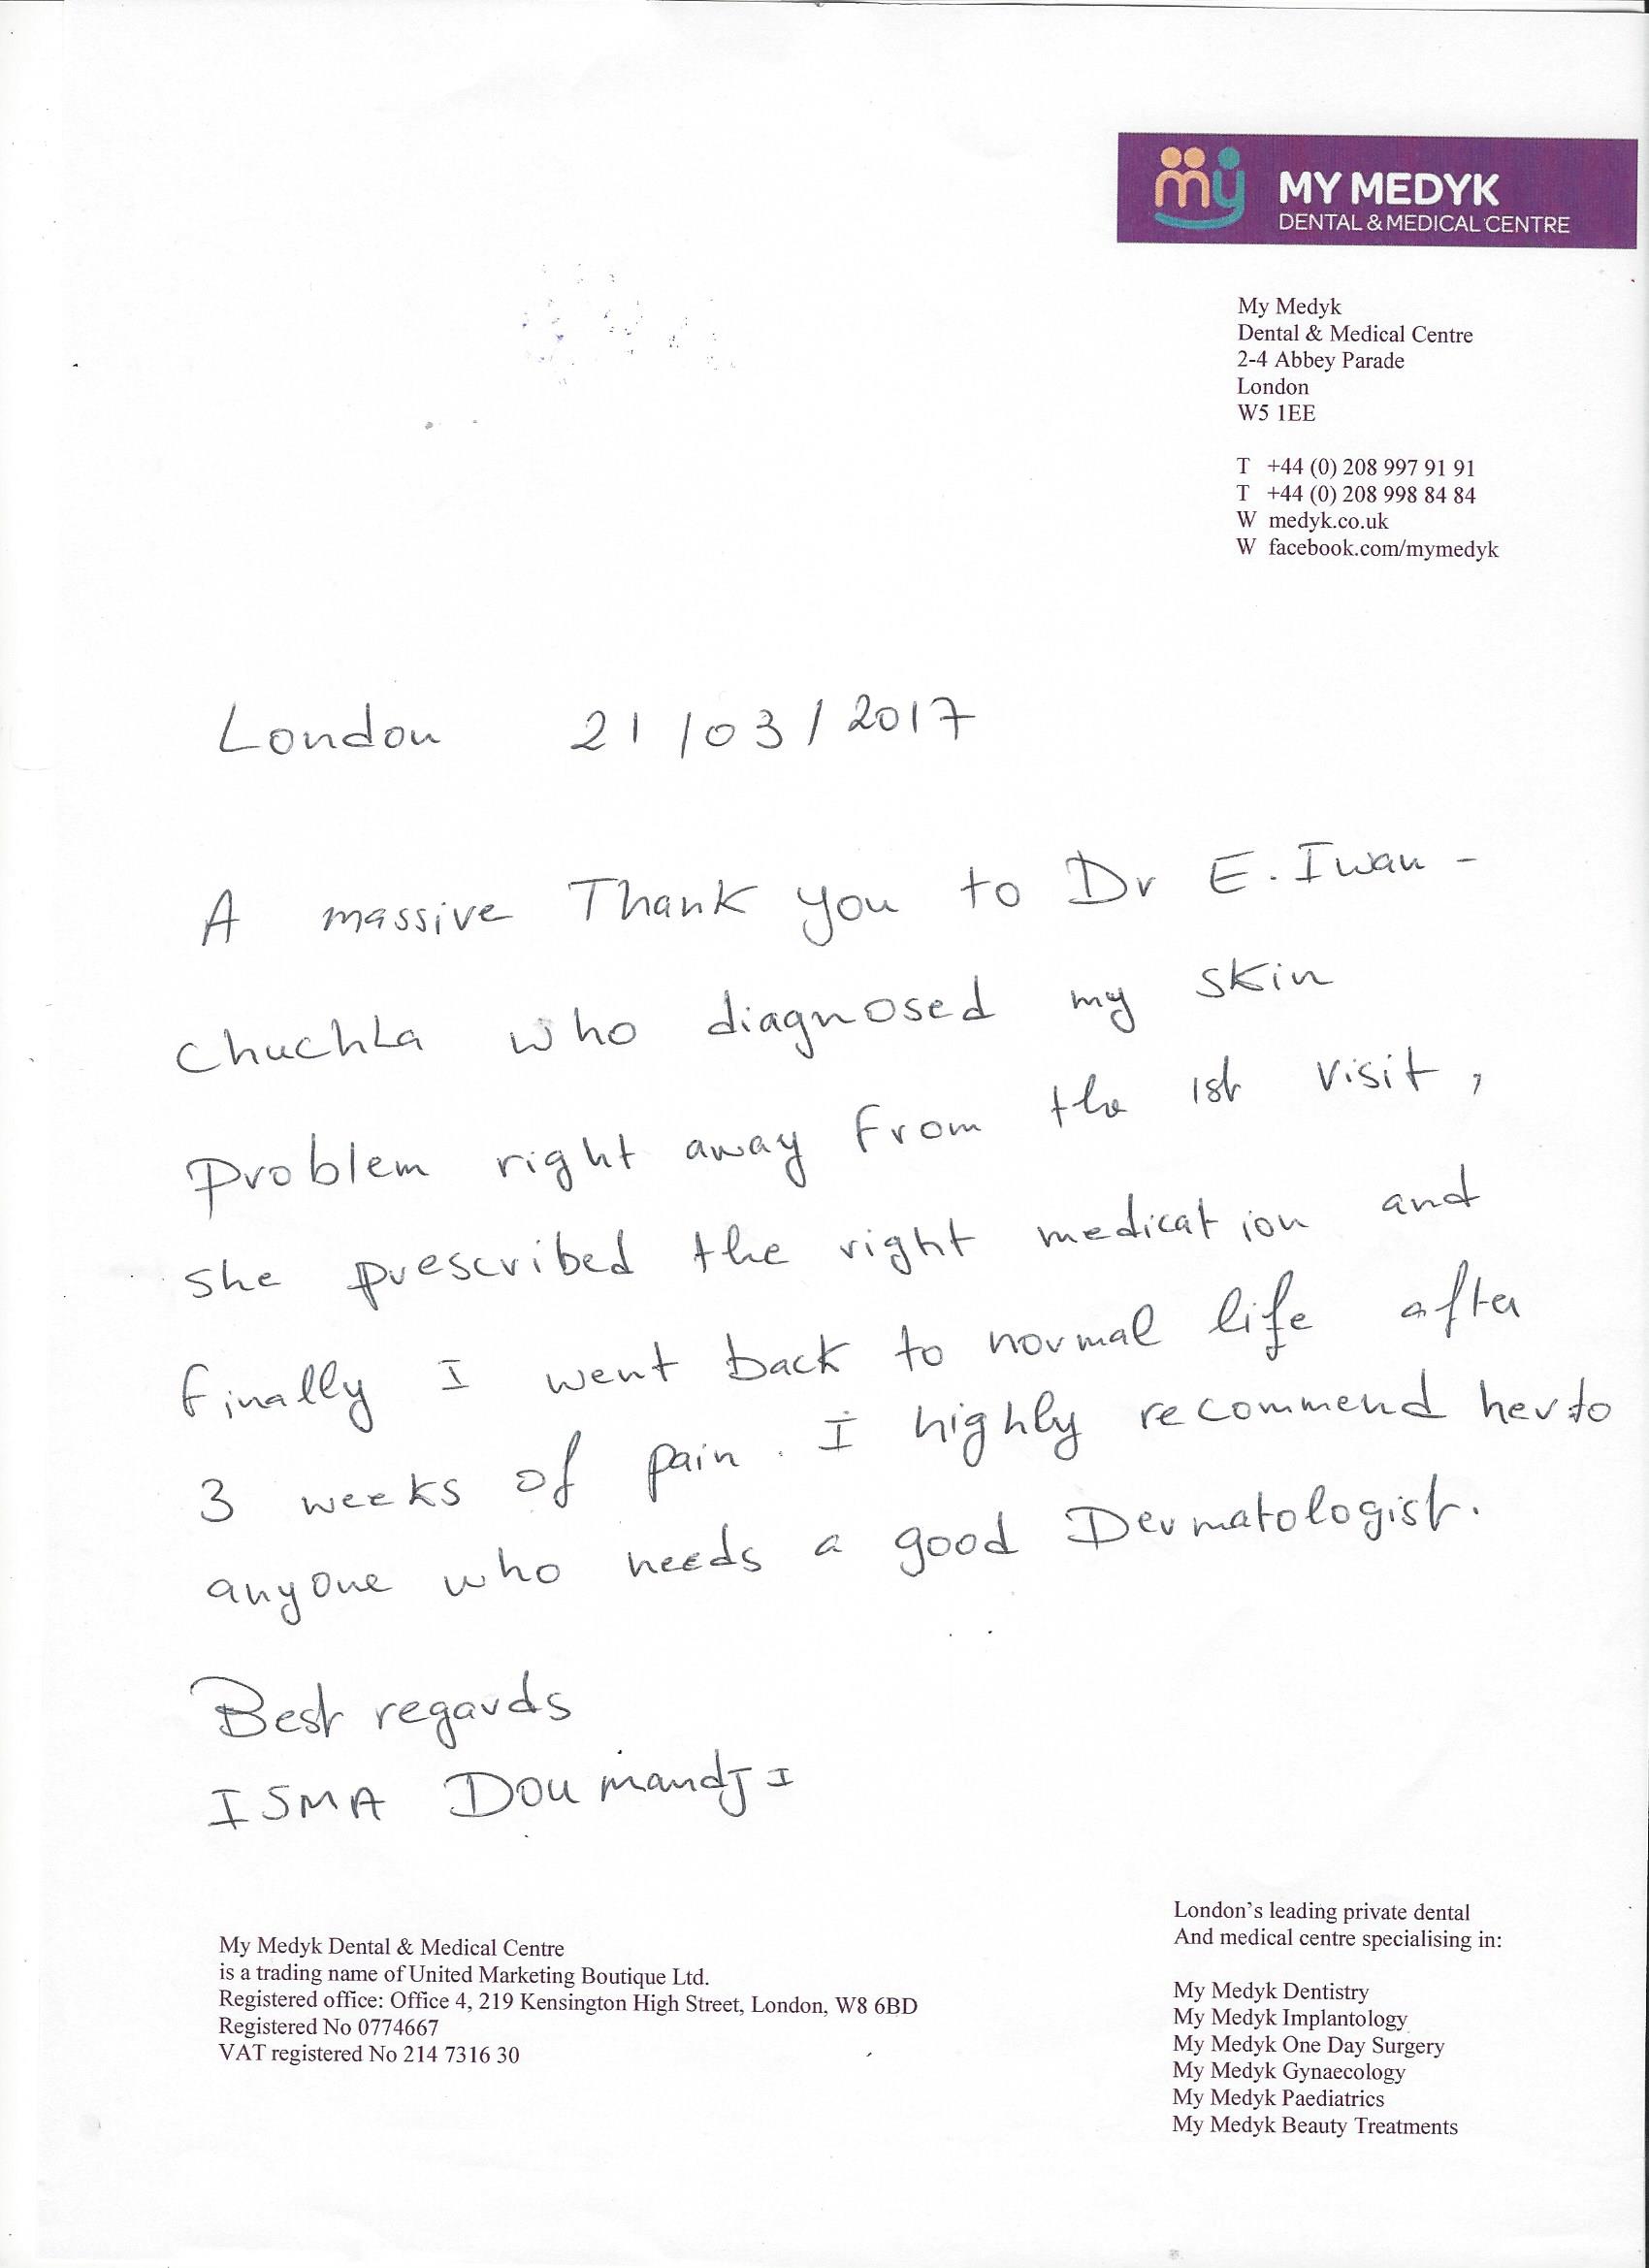 my MY MEDYK
DENTAL & MEDICAL CENTRE
My Medyk
Dental & Medical Centre
2-4 Abbey Parade
London
W5 1EE
T +44 (0) 208 997 91 91
T +44 (0) 208 998 84 84
W medyk.co.uk
W facebook.com/mymedyk
London 21/03/2017
A massive Thank you to Dr E. Iwan -
Chuchla who diagnosed my skin
Problem right away from the 1st visit,
she prescribed the right medication and
finally I went back to normal life after
3 weeks of pain. I highly recommend her to
anyone who needs a good Dermatologist.
Best regards
ISMA DoumandJI
My Medyk Dental & Medical Centre
is a trading name of United Marketing Boutique Ltd.
Registered office: Office 4, 219 Kensington High Street, London, W8 6BD
Registered No 0774667
VAT registered No 214 7316 30
London's leading private dental
And medical centre specialising in:
My Medyk Dentistry
My Medyk Implantology
My Medyk One Day Surgery
My Medyk Gynaecology
My Medyk Paediatrics
My Medyk Beauty Treatments